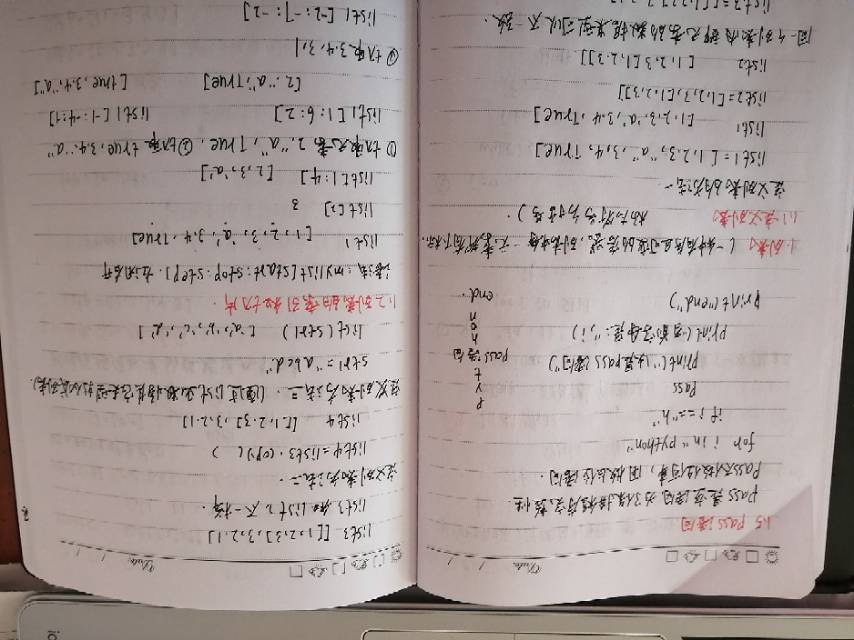 1.5 pass语句
pass是空语句 为了保持程序完整性
pass不做任何事, 用做占位语句.
for i in "python"
if i=="h"
pass
print("这是pass语句")
print("当前字母是:",i)
print("end")
P
y
t
pass语句
h
o
n
end.
1.列表 (一种有序且可变的容器, 列表中每一元素都有下标.
1.1 定义列表
定义列表的方法一
list1=[1,2,3,"a",3.4,True]
list1
[1,2,3,'a',3.4,True]
list2=[1,2,3,[1,2,3]]
list2 [1,2,3[1,2,3]]
同一个列表内部元素的数据类型可以不一致.
list3=[[1,2,3],3,2,1]
list3 [[1,2,3],3,2,1]
list3 和 list2 不一样.
定义列表方法二
list4=list3.copy()
list4 [[1,2,3],3,2,1]
str1="abcd"
list(str1) ['a','b','c','d']
1.2 列表的索引和切片.
语法:mylist[start:stop:step]. 左闭右开
list1 [1,2,3,'a',3.4,True]
list[2] 3
list[1:4] [2,3,'a']
① 切取元素 2,"a",True, ②切取 true,3.4,"a"
list1[1:6:2] list1[-1:-4:-1]
[2,"a",True] [true,3.4,"a"]
④ 切取3.4,3,1
list1[-2:-7:-2]